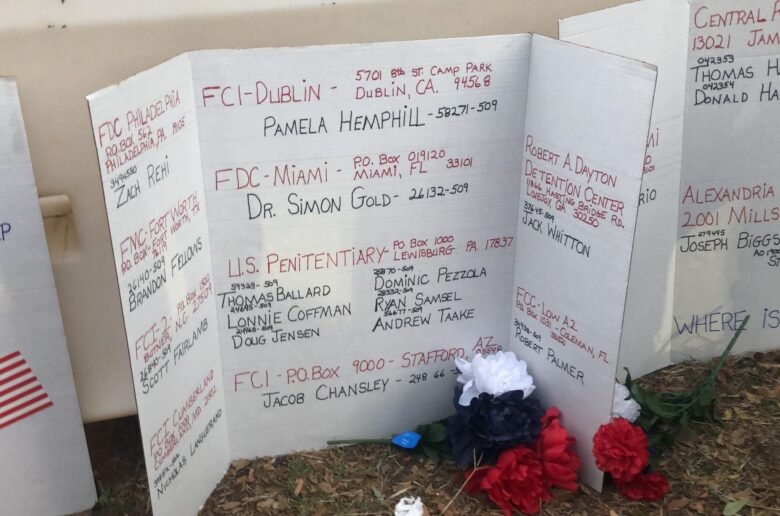 P
FDC PHILADELPHIA
P.O. BOX 562
PHILADELPHIA, PA
ZACH REHI
FMC-FORT WORTH
26140-509
BRANDON FELLOWS
FCI-2 - P.O. BOX 1500
BUTNER, N.C. 27509
SCOTT FAIRLAMB
FCI CUMBERLAND
CUMBERLAND, MD
NICHOLAS LANGUERAND
FCI-DUBLIN - 5701 8th ST. CAMP PARK
DUBLIN, CA. 94568
PAMELA HEMPHILL-58271-509
FDC-MIAMI - P.O. BOX 019120
MIAMI, FL 33101
DR. SIMON GOLD - 26132-509
U.S. PENITENTIARY- PO BOX 1000
LEWISBURG, PA 17837
THOMAS BALLARD
LONNIE COFFMAN
DOUG JENSEN
25870-509
DOMINIC PEZZOLA
RYAN SAMSEL
ANDREW TAAKE
FCI - P.O. BOX 9000 - STAFFORD, AZ
JACOB CHANSLEY - 248 66
ROBERT A DAYTON
DETENTION CENTER
11866 HASTING BRIDGE RD.
LOVEJOY, GA 30250
37645-509
JACK WHITTON
FCC-LOW A2
P.O. BOX 1031 COLEMAN, FL
ROBERT PALMER
RIO
CENTRAL R
13021 JAM
042353
THOMAS H
042354
DONALD HA
ALEXANDRIA
2001 MILLS
279495
JOSEPH BIGGS
WHERE IS